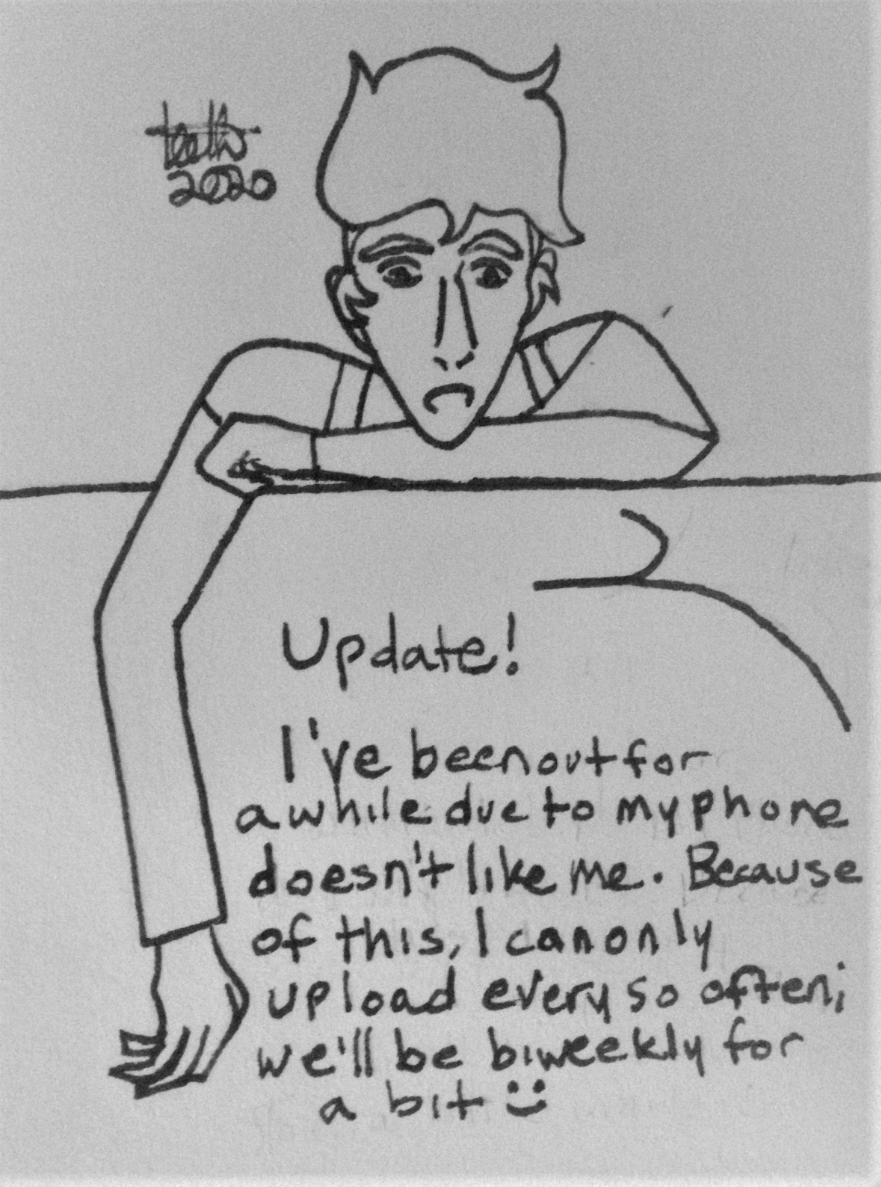 teeth
2020
Update!
I've been out for
awhile due to my phone
doesn't like me. Because
of this, I can only
upload every so often;
we'll be biweekly for
a bit :)